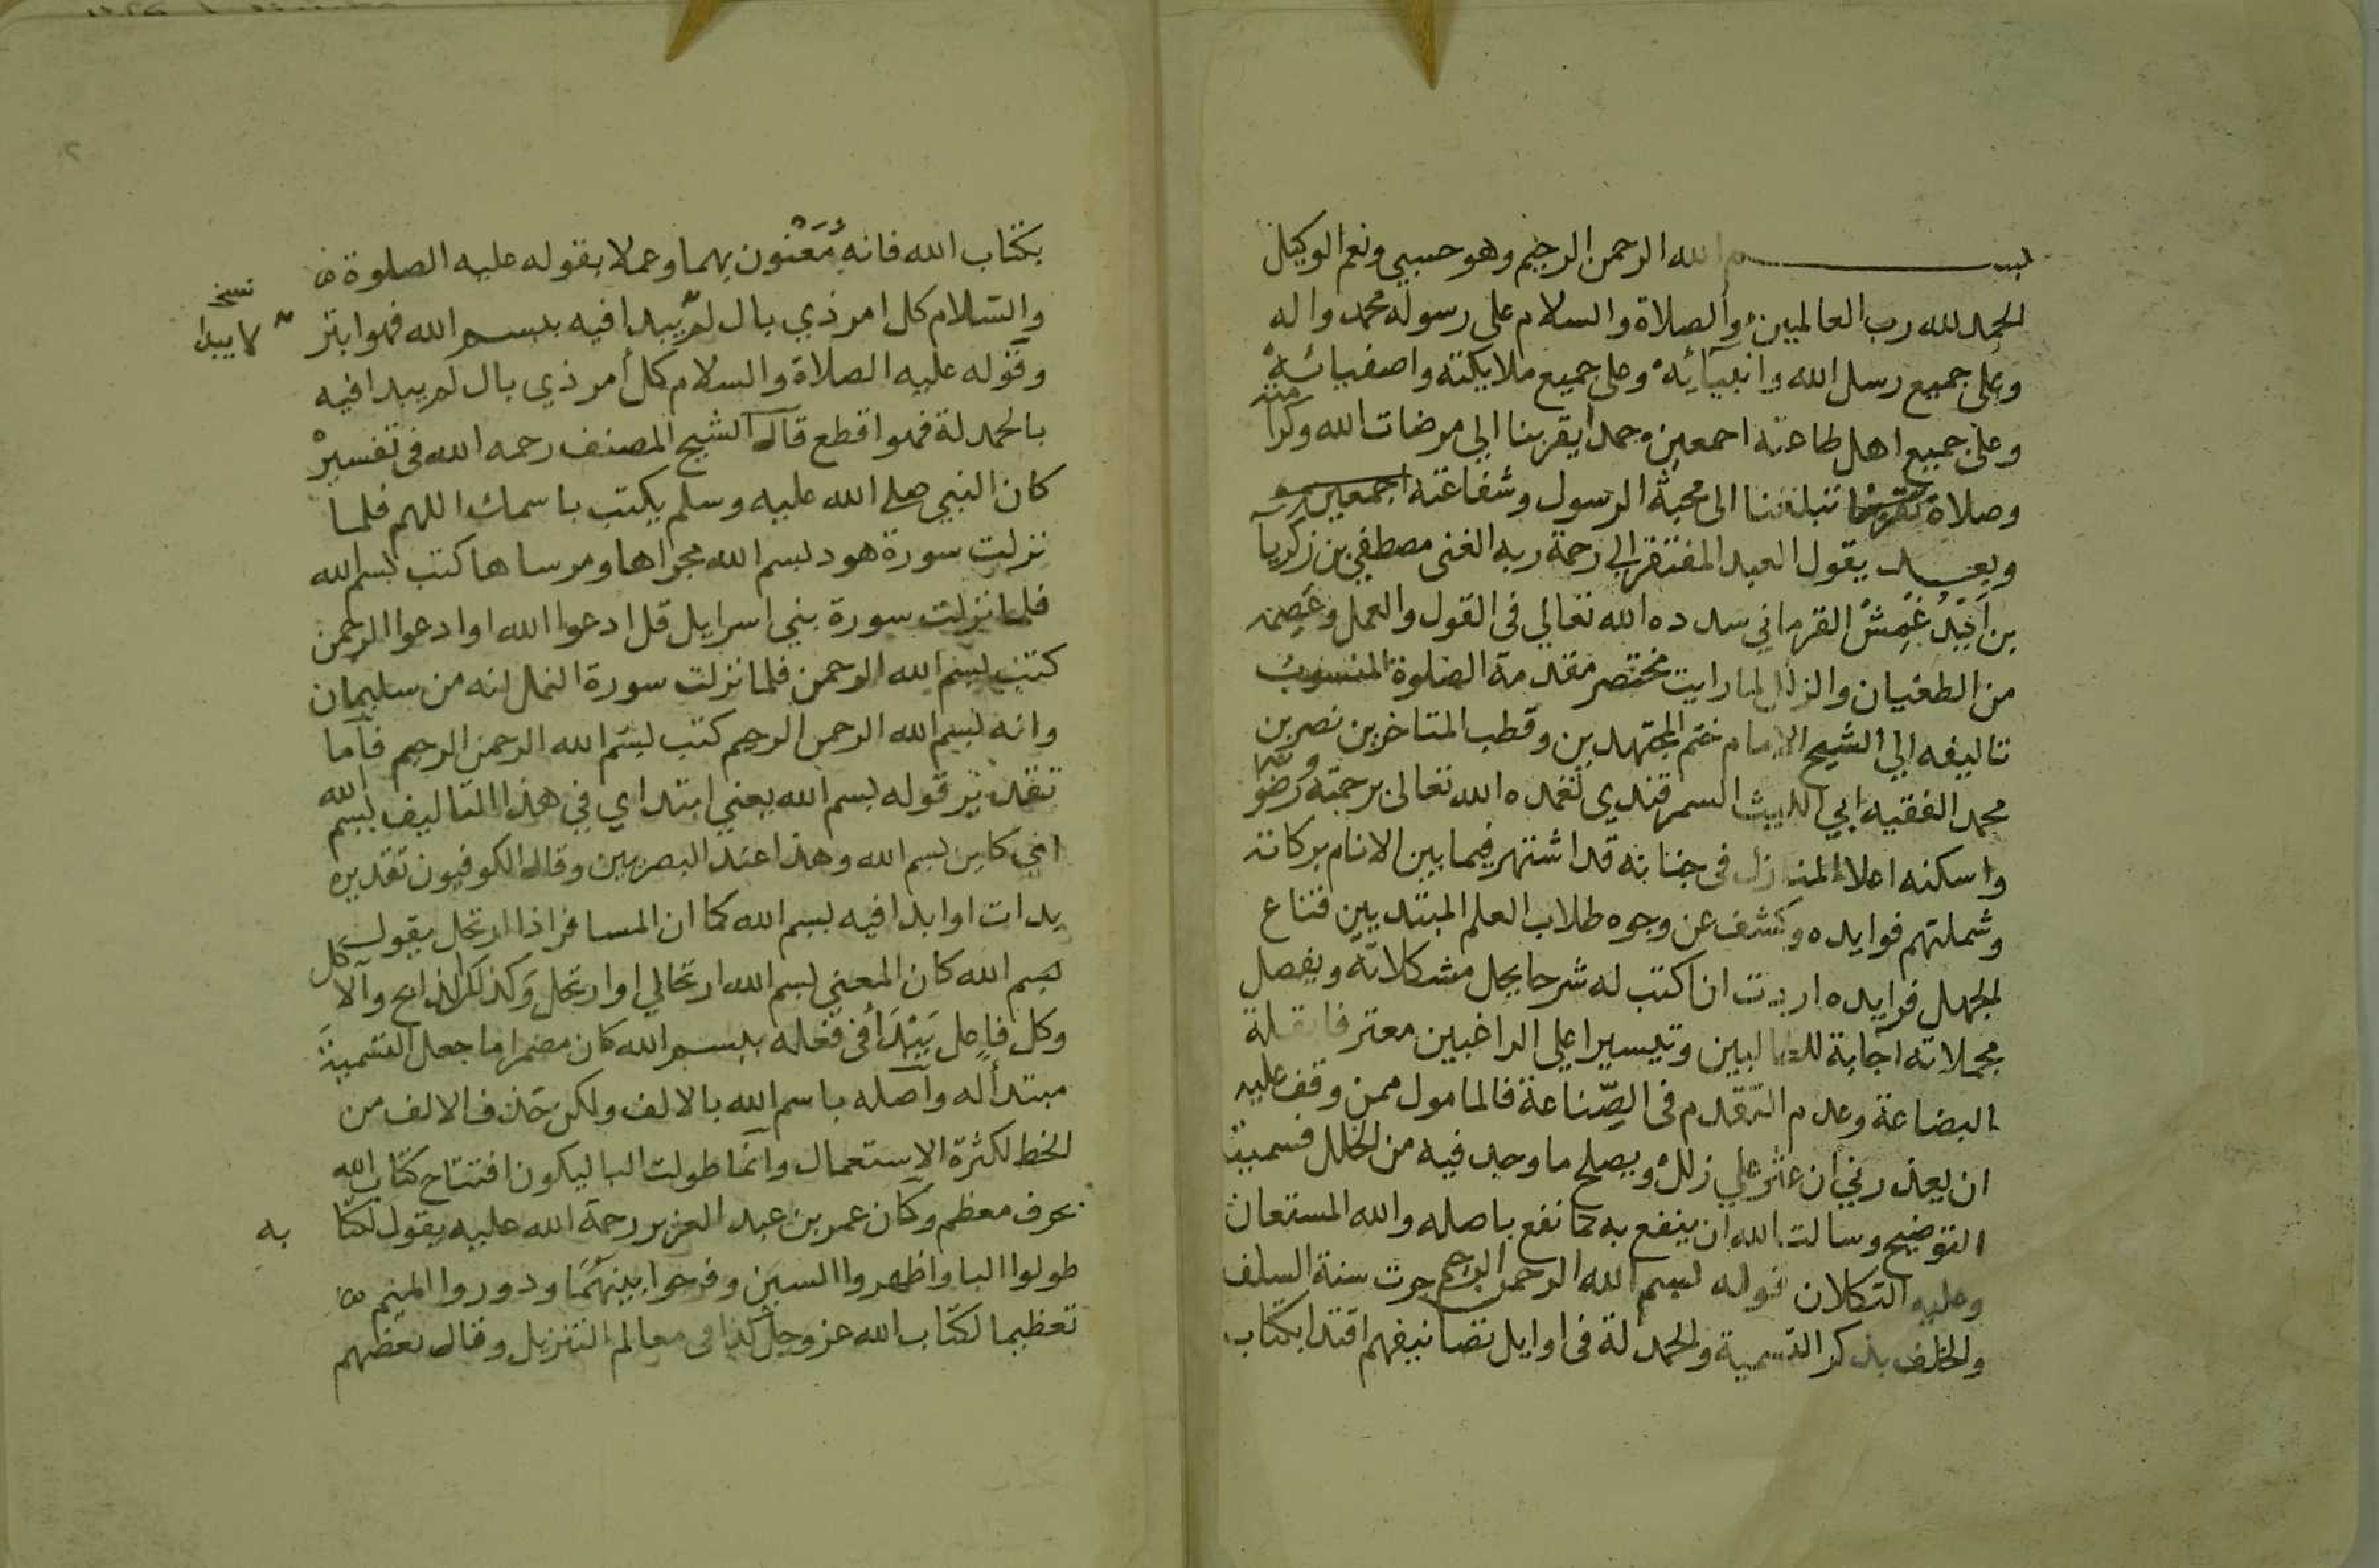 بسم الله الرحمن الرحيم وهو حسبي ونعم الوكيل
الحمد لله رب العالمين والصلاة والسلام على رسوله محمد واله
وعلى جميع رسل الله وانبيآئه وعلى جميع ملايكته واصفيائه
وعلى جميع اهل طاعته اجمعين حمدا يقربنا الي مرضات الله وكرا
مته
وصلاة تبلغنا الى محبة الرسول وشفاعته اجمعين
وبعد يقول العبد المفتقر الي رحمة ربه الغنى مصطفي بن زكريا
بن آيْدُغْمِشْ القرماني سدده الله تعالي فى القول والعمل وعصمه
من الطغيان والزلل لما رايت مختصر مقدمة الصلوة المنسوب
تاليفه الي الشيخ الامام ختم المجتهدين وقطب المتاخرين نصر بن
محمد الفقيه ابي الليث السمرقندي تغمده الله تعالى برحمته ورضو
واسكنه اعلا المنازل فى جنابه قد اشتهر فيما بين الانام بركاته
وشملتهم فوايده وكشف عن وجوه طلاب العلم المبتديين قناع
الجهل فرايده اردت ان اكتب له شرحا يحل مشكلاته ويفصل
مجملاته اجابة للطالبين وتيسيرا علي الراغبين معترفا بقلة
البضاعة وعدم التقدم فى الصِّناعة فالمامول ممن وقف عليه
ان يعذرني ان عثر علي زلل ويصلح ما وجد فيه من الخلل فسميته
التوضيح وسالت الله ان ينفع به كما نفع باصله والله المستعان
وعليه التكلان قوله بسم الله الرحمن الرحيم جرت سنة السلف
والخلف بذكر التسمية والحمدلة فى اوايل تصانيفهم اقتدا بكتاب
بكتاب الله فانه مُعَنْوَن بهما وعملا بقوله عليه الصلوة
والسلام كل امر ذي بال لم يبدا فيه ببسم الله فهو ابتر
نسخ
لا يبدا
وقوله عليه الصلاة والسلام كل أمر ذي بال لم يبدا فيه
بالحمدلة فهو اقطع قال الشيخ المصنف رحمه الله فى تفسيره
كان النبي صلى الله عليه وسلم يكتب باسمك اللهم فلما
نزلت سورة هود بسم الله مجراها ومرساها كتب بسم الله
فلما نزلت سورة بني اسرايل قل ادعوا الله او ادعوا الرحمن
كتب بسم الله الرحمن فلما نزلت سورة النمل انه من سليمان
وانه بسم الله الرحمن الرحيم كتب بسم الله الرحمن الرحيم فاما
تقدير قوله بسم الله يعني ابتداي في هذا التاليف بسم الله
اني كاين بسم الله وهذا عند البصريين وقال الكوفيون تقديره
بدات او ابدا فيه بسم الله كما ان المسافر اذا ارتحل يقول
بسم الله كان المعني بسم الله ارتحالي او ارتحل وكذلك الذابح والاكل
وكل فاعل يَبْدَأ فى فعله ببسم الله كان مضمرا ما جعل التسمية
مبتدأ له واصله باسم الله بالالف ولكن حذف الالف من
الخط لكثرة الاستعمال وانما طولت البا ليكون افتتاح كتاب الله
بحرف معظم وكان عمر بن عبد العزيز رحمة الله عليه يقول لكتا
به
طولوا البا واظهروا السين وفرجوا بينهما ودوروا الميم
تعظيما لكتاب الله عز وجل كذا فى معالم التنزيل وقال بعضهم